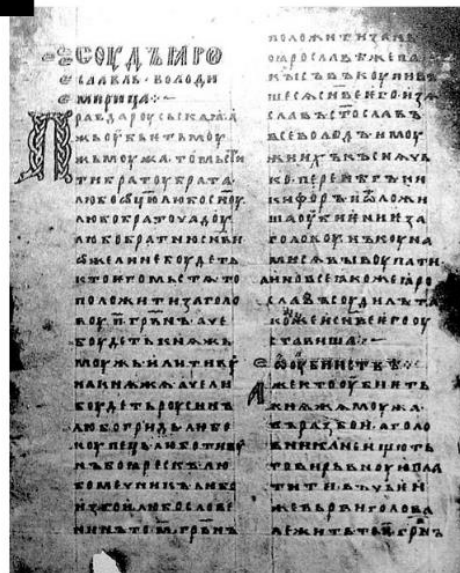 СОУДЪ ꙖРО
СЛАВЛЬ · ВОЛОДИ
МИРИЦА :~
ПРАВДА РОУСЬСКАꙖ А
ЖЬ ОУБЬѤТЬ МОУ
ЖЬ МОУЖА · ТО МЬСТИ
ТИ БРАТОУ БРАТА ·
ЛЮБО ѾЦЮ ЛЮБО СН҃ОУ
ЛЮБО БРАТОУЧАДОУ
ЛЮБО БРАТНЮ СН҃ВИ
ѠЖЕ ЛИ НЕ БОУДЕТЬ
КТО ѤГО МЬСТѦ ТО
ПОЛОЖИТИ ЗА ГОЛО
ВОУ · П҃ · ГРВ҃НЪ · АЧЕ
БОУДЕТЬ КНѦЖЬ
МОУЖЬ · ИЛИ ТИВОУ
НА КНѦЖА · АЧЕ ЛИ
БОУДЕТЬ РОУСИНЪ
ЛЮБО ГРИДЬ ЛЮБО
КОУПЕЦЬ ЛЮБО ТИВОУ
НЪ БОꙖРЕСКЪ ЛЮ
БО МЕЧНИКЪ ЛЮБО
ИЗГОИ ЛЮБО СЛОВЕ
НИНЪ ТО · М҃ · ГРВ҃НЪ
ПОЛОЖИТИ ЗА НЬ
ПО ꙖРОСЛАВѢ ЖЕ ПА
КЫ СЪВЪКОУПИВЪ
ШЕСѦ СН҃ВЕ ѤГО · ИЗѦ
СЛАВЪ СТ҃ОСЛАВЪ
ВСЕВОЛОДЪ И МОУ
ЖИ ИХЪ КЪСНѦЧЬ
КО · ПЕРЕНѢГЪ НИ
КИФОРЪ И ѾЛОЖИ
ША ОУБИѤНИѤ ЗА
ГОЛОВОУ НЪ КОУНА
МИ СѦ ВЫКОУПАТИ
А ИНО ВСЕ ꙖКОЖЕ ꙖРО
СЛАВЪ СОУДИЛЪ ТА
КОЖЕ И СН҃ВЕ ѤГО ОУ
СТАВИША :~
Ѡ ОУБИИСТВѢ :~
АЖЕ КТО ОУБИѤТЬ
КНѦЖА МОУЖА
ВЪ РАЗБОИ · А ГОЛО
ВНИКА НЕ ИЩЮТЬ
ТО ВИРЬВНОУЮ ПЛА
ТИТИ · ВЪ ЧЬѤИ
ЖЕ ВЬРВИ ГОЛОВА
ЛЕЖИТЬ ТО · П҃ · ГРВ҃НЪ